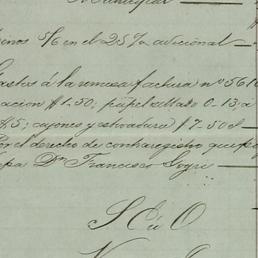 Municipal
inos S/C en el 25% adicional
Gastos á la remesa factura nº 561
acion $1.50; papel sellado 0-13; a
8.5; cajones y estivadura $7-50 cl
Por el derecho de contraregistro que pa
Dn Francisco
S C ú O